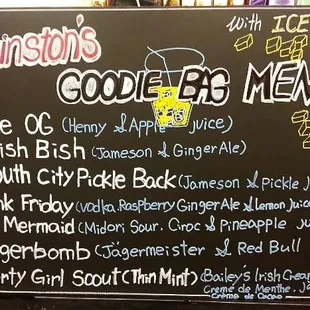 inston's
With ICE
GOODIE BAG MEN
e OG (Henny & Apple juice)
ish Bish (Jameson & Ginger Ale)
outh City Pickle Back (Jameson & Pickle j
nk Friday (vodka, Raspberry Ginger Ale & Lemon Juice
Mermaid (Midori Sour, Ciroc & Pineapple ju
gerbomb (Jägermeister & Red Bull
rty Girl Scout (Thin Mint) (Bailey's Irish Cream
Creme de Menthe, J
Creme de Cacao